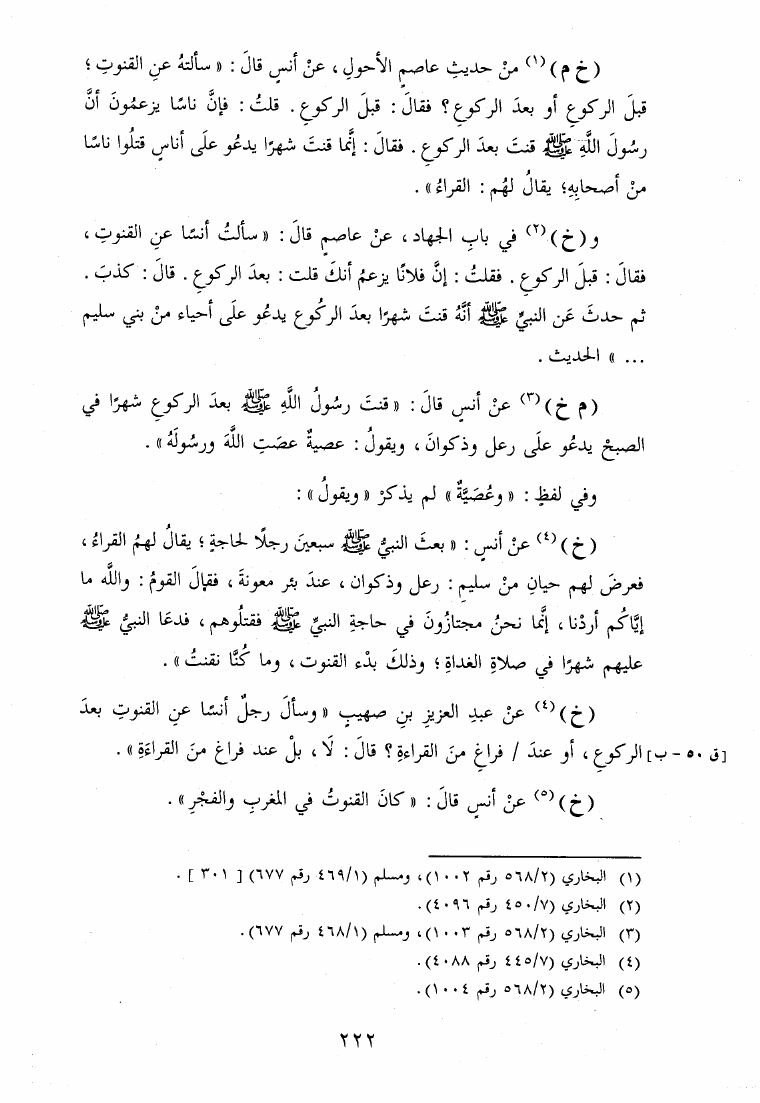 (خ م)(١) منْ حديثِ عاصمٍ الأحولِ، عنْ أنسٍ قالَ: «سألتهُ عنِ القنوتِ؛
قبلَ الركوعِ أو بعدَ الركوعِ؟ فقالَ: قبلَ الركوعِ. قلتُ: فإنَّ ناسًا يزعمُونَ أنَّ
رسُولَ اللَّهِ ﷺ قنتَ بعدَ الركوعِ. فقالَ: إنَّما قنتَ شهرًا يدعُو علَى أناسٍ قتلُوا ناسًا
منْ أصحابِهِ؛ يقالُ لهُم: القراءُ».
و(خ)(٢) في بابِ الجهاد، عنْ عاصمٍ قالَ: «سألتُ أنسًا عنِ القنوتِ،
فقالَ: قبلَ الركوعِ. فقلتُ: إنَّ فلانًا يزعمُ أنكَ قلت: بعدَ الركوعِ. قالَ: كذبَ.
ثم حدثَ عَن النبيِّ ﷺ أنَّهُ قنتَ شهرًا بعدَ الرُكوعِ يدعُو علَى أحياء منْ بني سليم
...» الحديث.
(م خ)(٣) عنْ أنسٍ قالَ: «قنتَ رسُولُ اللَّهِ ﷺ بعدَ الركوعِ شهرًا في
الصبحْ يدعُو علَى رعل وذكوانَ، ويقولُ: عصيةٌ عصَتِ اللَّهَ ورسُولَهُ».
وفي لفظٍ: «وعُصَيَّةٌ» لم يذكرْ «ويقولُ»:
(خ)(٤) عنْ أنسٍ: «بعثَ النبيُّ ﷺ سبعينَ رجلًا لحاجةٍ؛ يقالُ لهمُ القراءُ،
فعرضَ لهم حيانِ منْ سليمٍ: رعل وذكوان، عندَ بئر معونةَ، فقالَ القومُ: واللَّه ما
إيَّاكُم أردْنا، إنَّما نحنُ مجتازُونَ في حاجةِ النبيِّ ﷺ فقتلُوهم، فدعَا النبيُّ ﷺ
عليهم شهرًا في صلاةِ الغداةِ؛ وذلكَ بدْء القنوت، وما كُنَّا نقنتُ».
(خ)(٤) عنْ عبدِ العزيزِ بنِ صهيبٍ «وسألَ رجلٌ أنسًا عنِ القنوتِ بعدَ
[ق ٥٠ - ب] الركوعِ، أو عندَ / فراغٍ منَ القراءةِ؟ قالَ: لَا، بلْ عند فراغٍ منَ القراءَةِ».
(خ)(٥) عنْ أنسٍ قالَ: «كانَ القنوتُ في المغربِ والفجْرِ».
(١) البخاري (٥٦٨/٢ رقم ١٠٠٢)، ومسلم (٤٦٩/١ رقم ٦٧٧) [ ٣٠١ ].
(٢) البخاري (٤٥٠/٧ رقم ٤٠٩٦).
(٣) البخاري (٥٦٨/٢ رقم ١٠٠٣)، ومسلم (٤٦٨/١ رقم ٦٧٧).
(٤) البخاري (٤٤٥/٧ رقم ٤٠٨٨).
(٥) البخاري (٥٦٨/٢ رقم ١٠٠٤).
٢٢٢